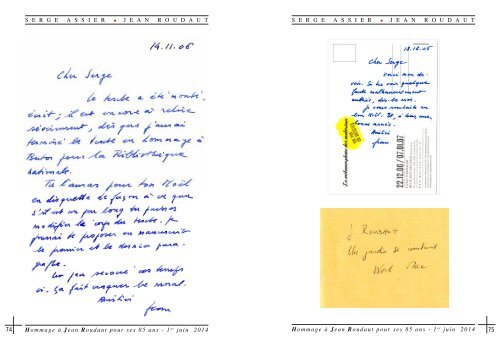 SERGE ASSIER • JEAN ROUDAUT
14.11.06
Cher Serge
Le texte a été monté,
écrit ; il est encore à relire
sévèrement, dès que j'aurai
terminé le texte en hommage à
Butor pour la Bibliothèque
nationale.
Tu l'auras pour ton Noël
en disquette de façon à ce que
s'il est un peu long tu puisses
modifier le corps du texte. Je
pourrai te proposer en manuscrit
le premier et le dernier para-
graphe.
un peu secoué ces temps
ci. Ça fait craquer le moral.
Amitiés
Jean
74 Hommage à Jean Roudaut pour ses 85 ans - 1er juin 2014
SERGE ASSIER • JEAN ROUDAUT
18.12.06
Cher Serge
Voici mon de-
voir. Si tu vois quelque
faute
dis-le moi.
Je vous souhaite un
bon Noël. Et, à tous une
bonne année.
Amitiés
Jean
22.12.06/07.01.07
J Roudaut
Un jardin
75 Hommage à Jean Roudaut pour ses 85 ans - 1er juin 2014